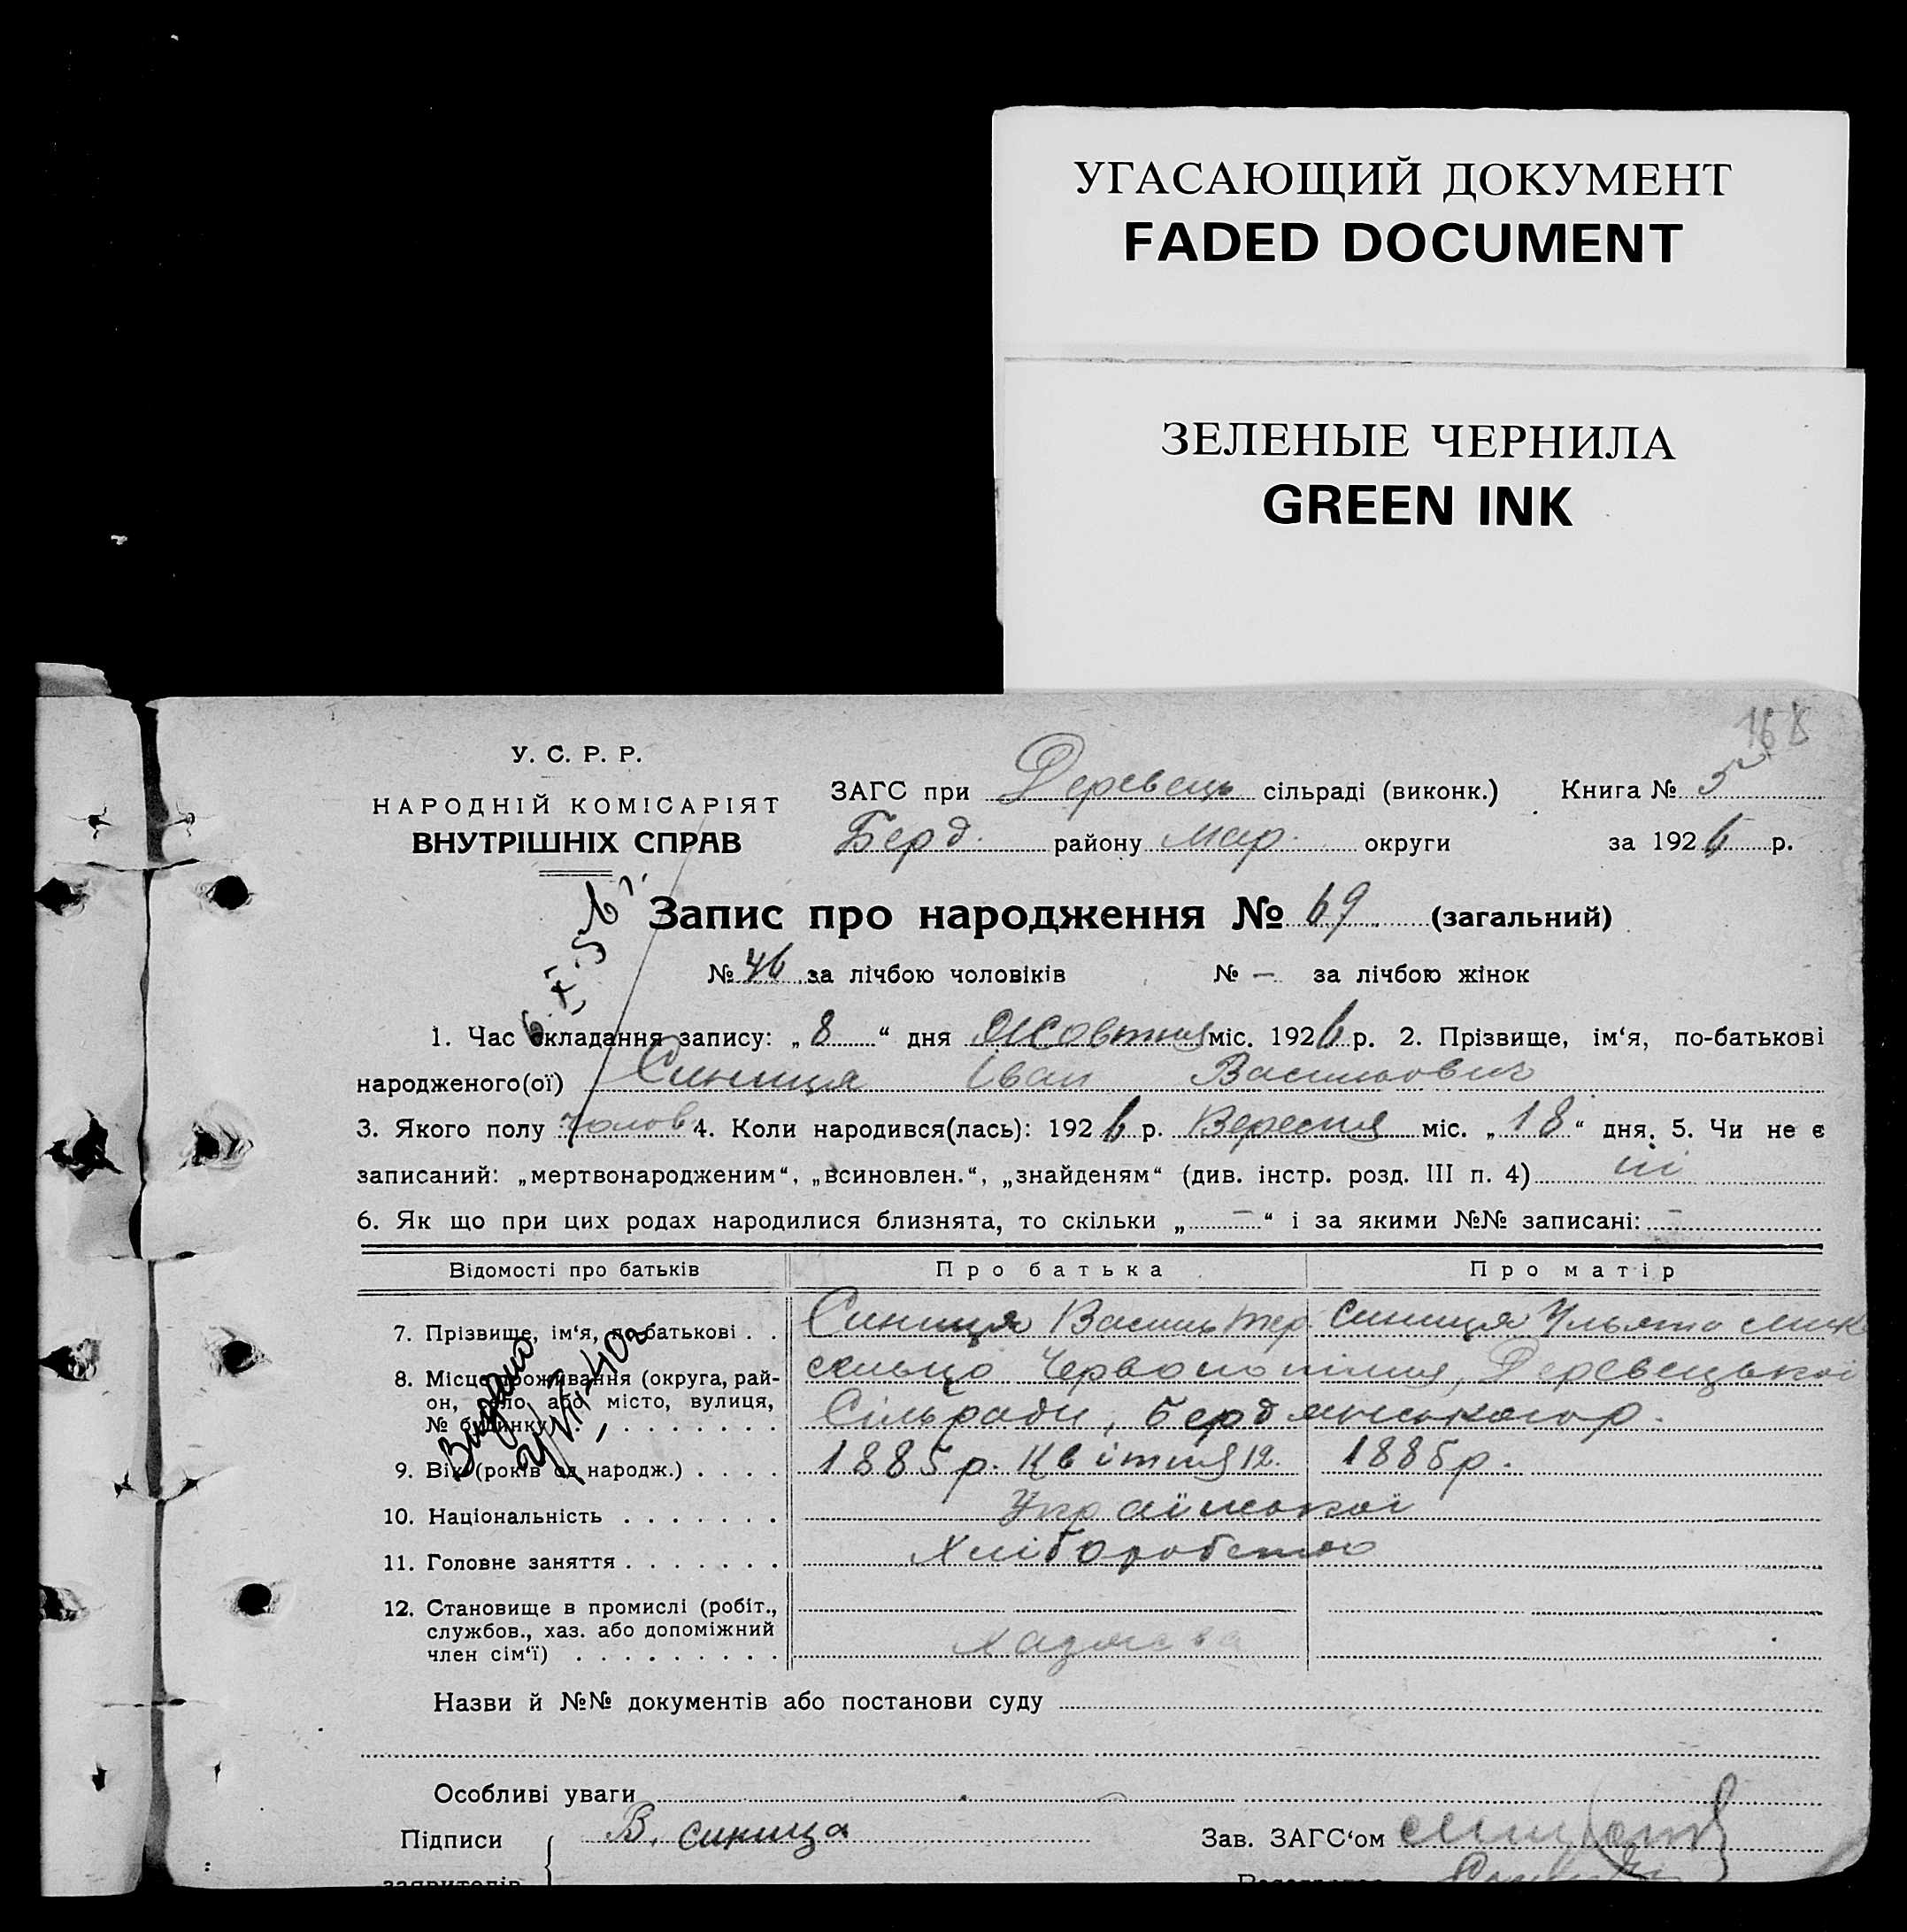 УГАСАЮЩИЙ ДОКУМЕНТ
FADED DOCUMENT
ЗЕЛЕНЫЕ ЧЕРНИЛА
GREEN INK
168
У. С. Р. Р.
НАРОДНІЙ КОМІСАРІЯТ
ВНУТРІШНІХ СПРАВ
ЗАГС при Деревець сільраді (виконк.) Книга № 5
Берд. району Мар. округи за 1926 р.
Запис про народження № 69 (загальний)
№ 46 за лічбою чоловіків № — за лічбою жінок
1. Час складання запису: „8“ дня Жовтня міс. 1926 р. 2. Прізвище, ім‘я, по-батькові
народженого(ої) Синиця Іван Васильович
3. Якого полу чолов. 4. Коли народився(лась): 1926 р. Вересня міс. „18“ дня. 5. Чи не є
записаний: „мертвонародженим“, „всиновлен.“, „знайденям“ (див. інстр. розд. III п. 4) ні
6. Як що при цих родах народилися близнята, то скільки „—“ і за якими №№ записані: —
Відомості про батьків Про батька Про матір
7. Прізвище, ім‘я, по-батькові . . Синиця Василь Тер. Синиця Ульяна
8. Місце проживання (округа, рай-
он, село або місто, вулиця,
№ будинку) . . . . . . . . .
сельцо Червонопілля, Деревецької
Сільради, Бердянського р.
9. Вік (років од народж.) . . . . 1885 р. Квітня 12. 1885 р.
10. Національність . . . . . . . Української
11. Головне заняття . . . . . . . Хліборобство
12. Становище в промислі (робіт.,
службов., хаз. або допоміжний
член сім‘ї) . . . . . . . . .
Хазяєва
Видано
Назви й №№ документів або постанови суду
Особливі уваги
Підписи В. Синица Зав. ЗАГС‘ом
заявителів